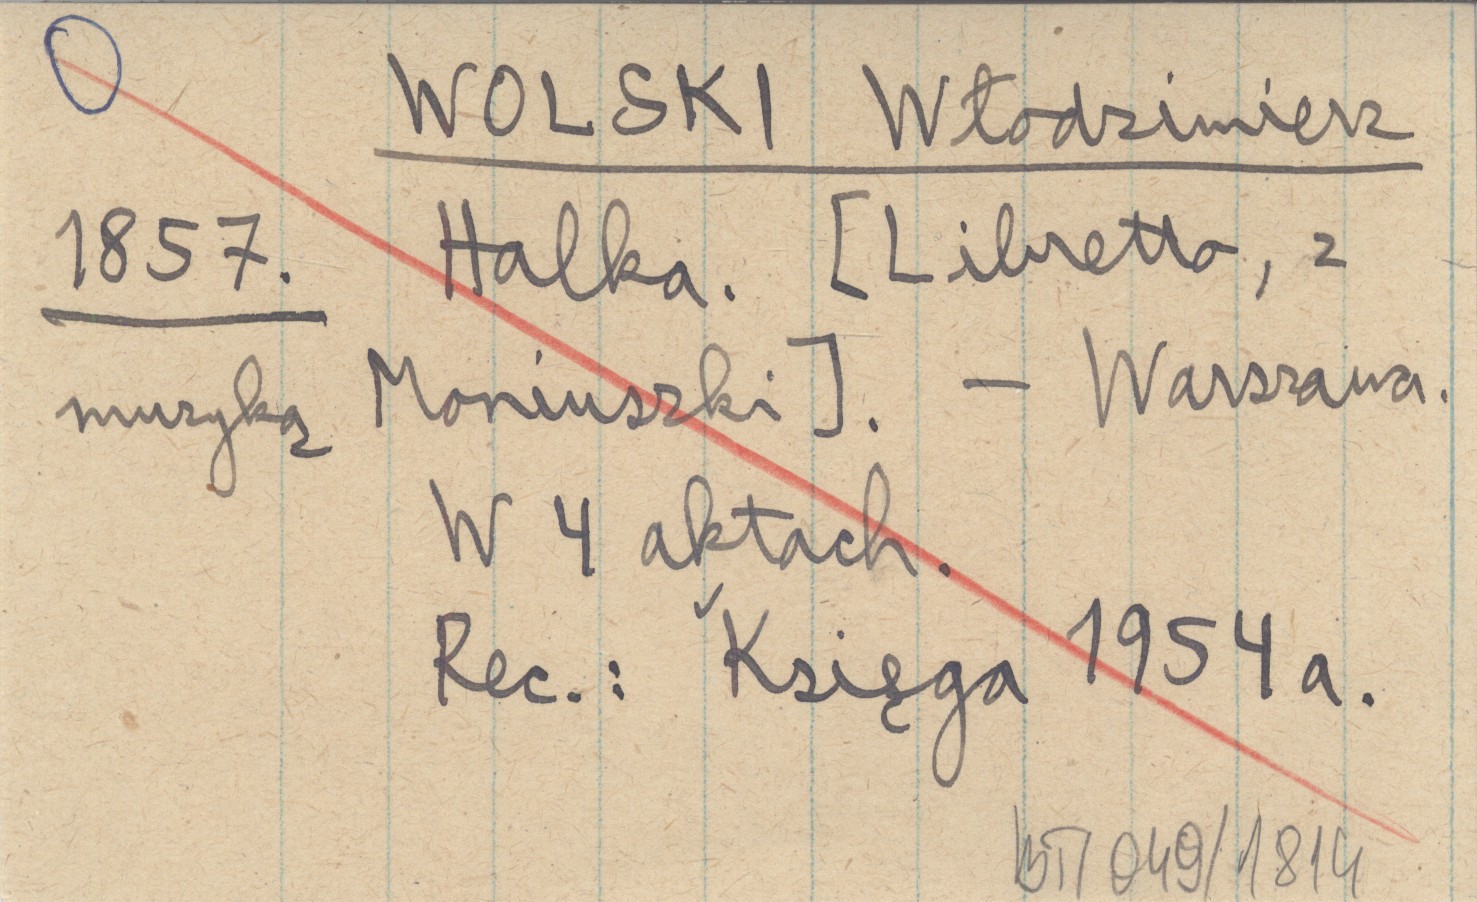 WOLSKI Włodzimierz
1857. Halka. [Libretto, z
muzyką Moniuszki]. – Warszawa.
W 4 aktach.
Rec.: Księga 1954a.
BT/049/1814